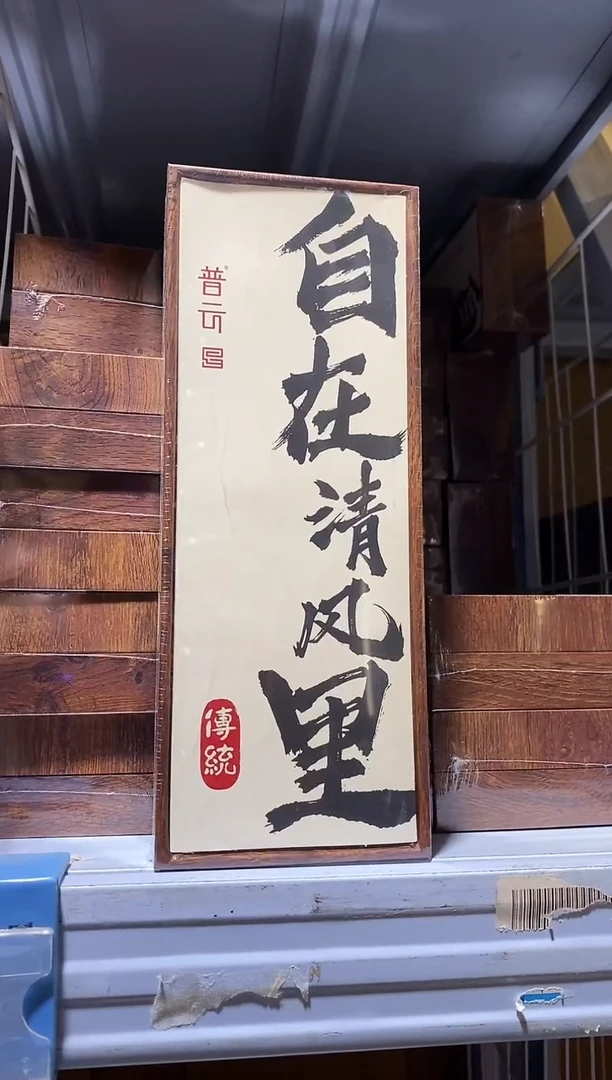 自在清风里
普云
傳統